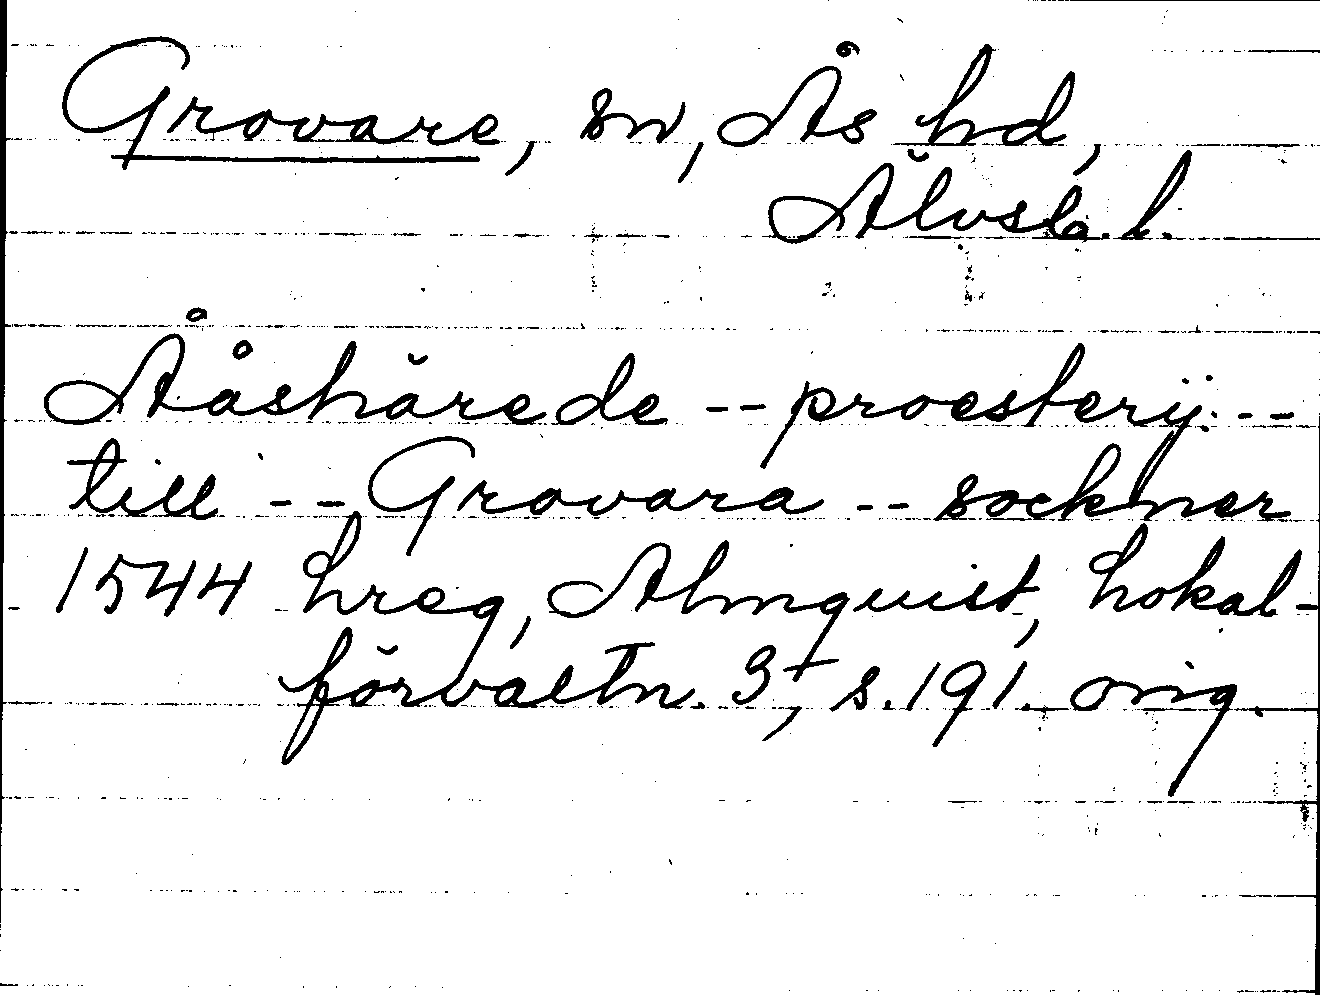 Grovare, sn, Ås hd,
Älvsb. l.
Ååshärede -- proesterij: --
till -- Grovara -- sockner
1544 hreg, Almquist, Lokal-
förvaltn. 3, s. 191. orig.